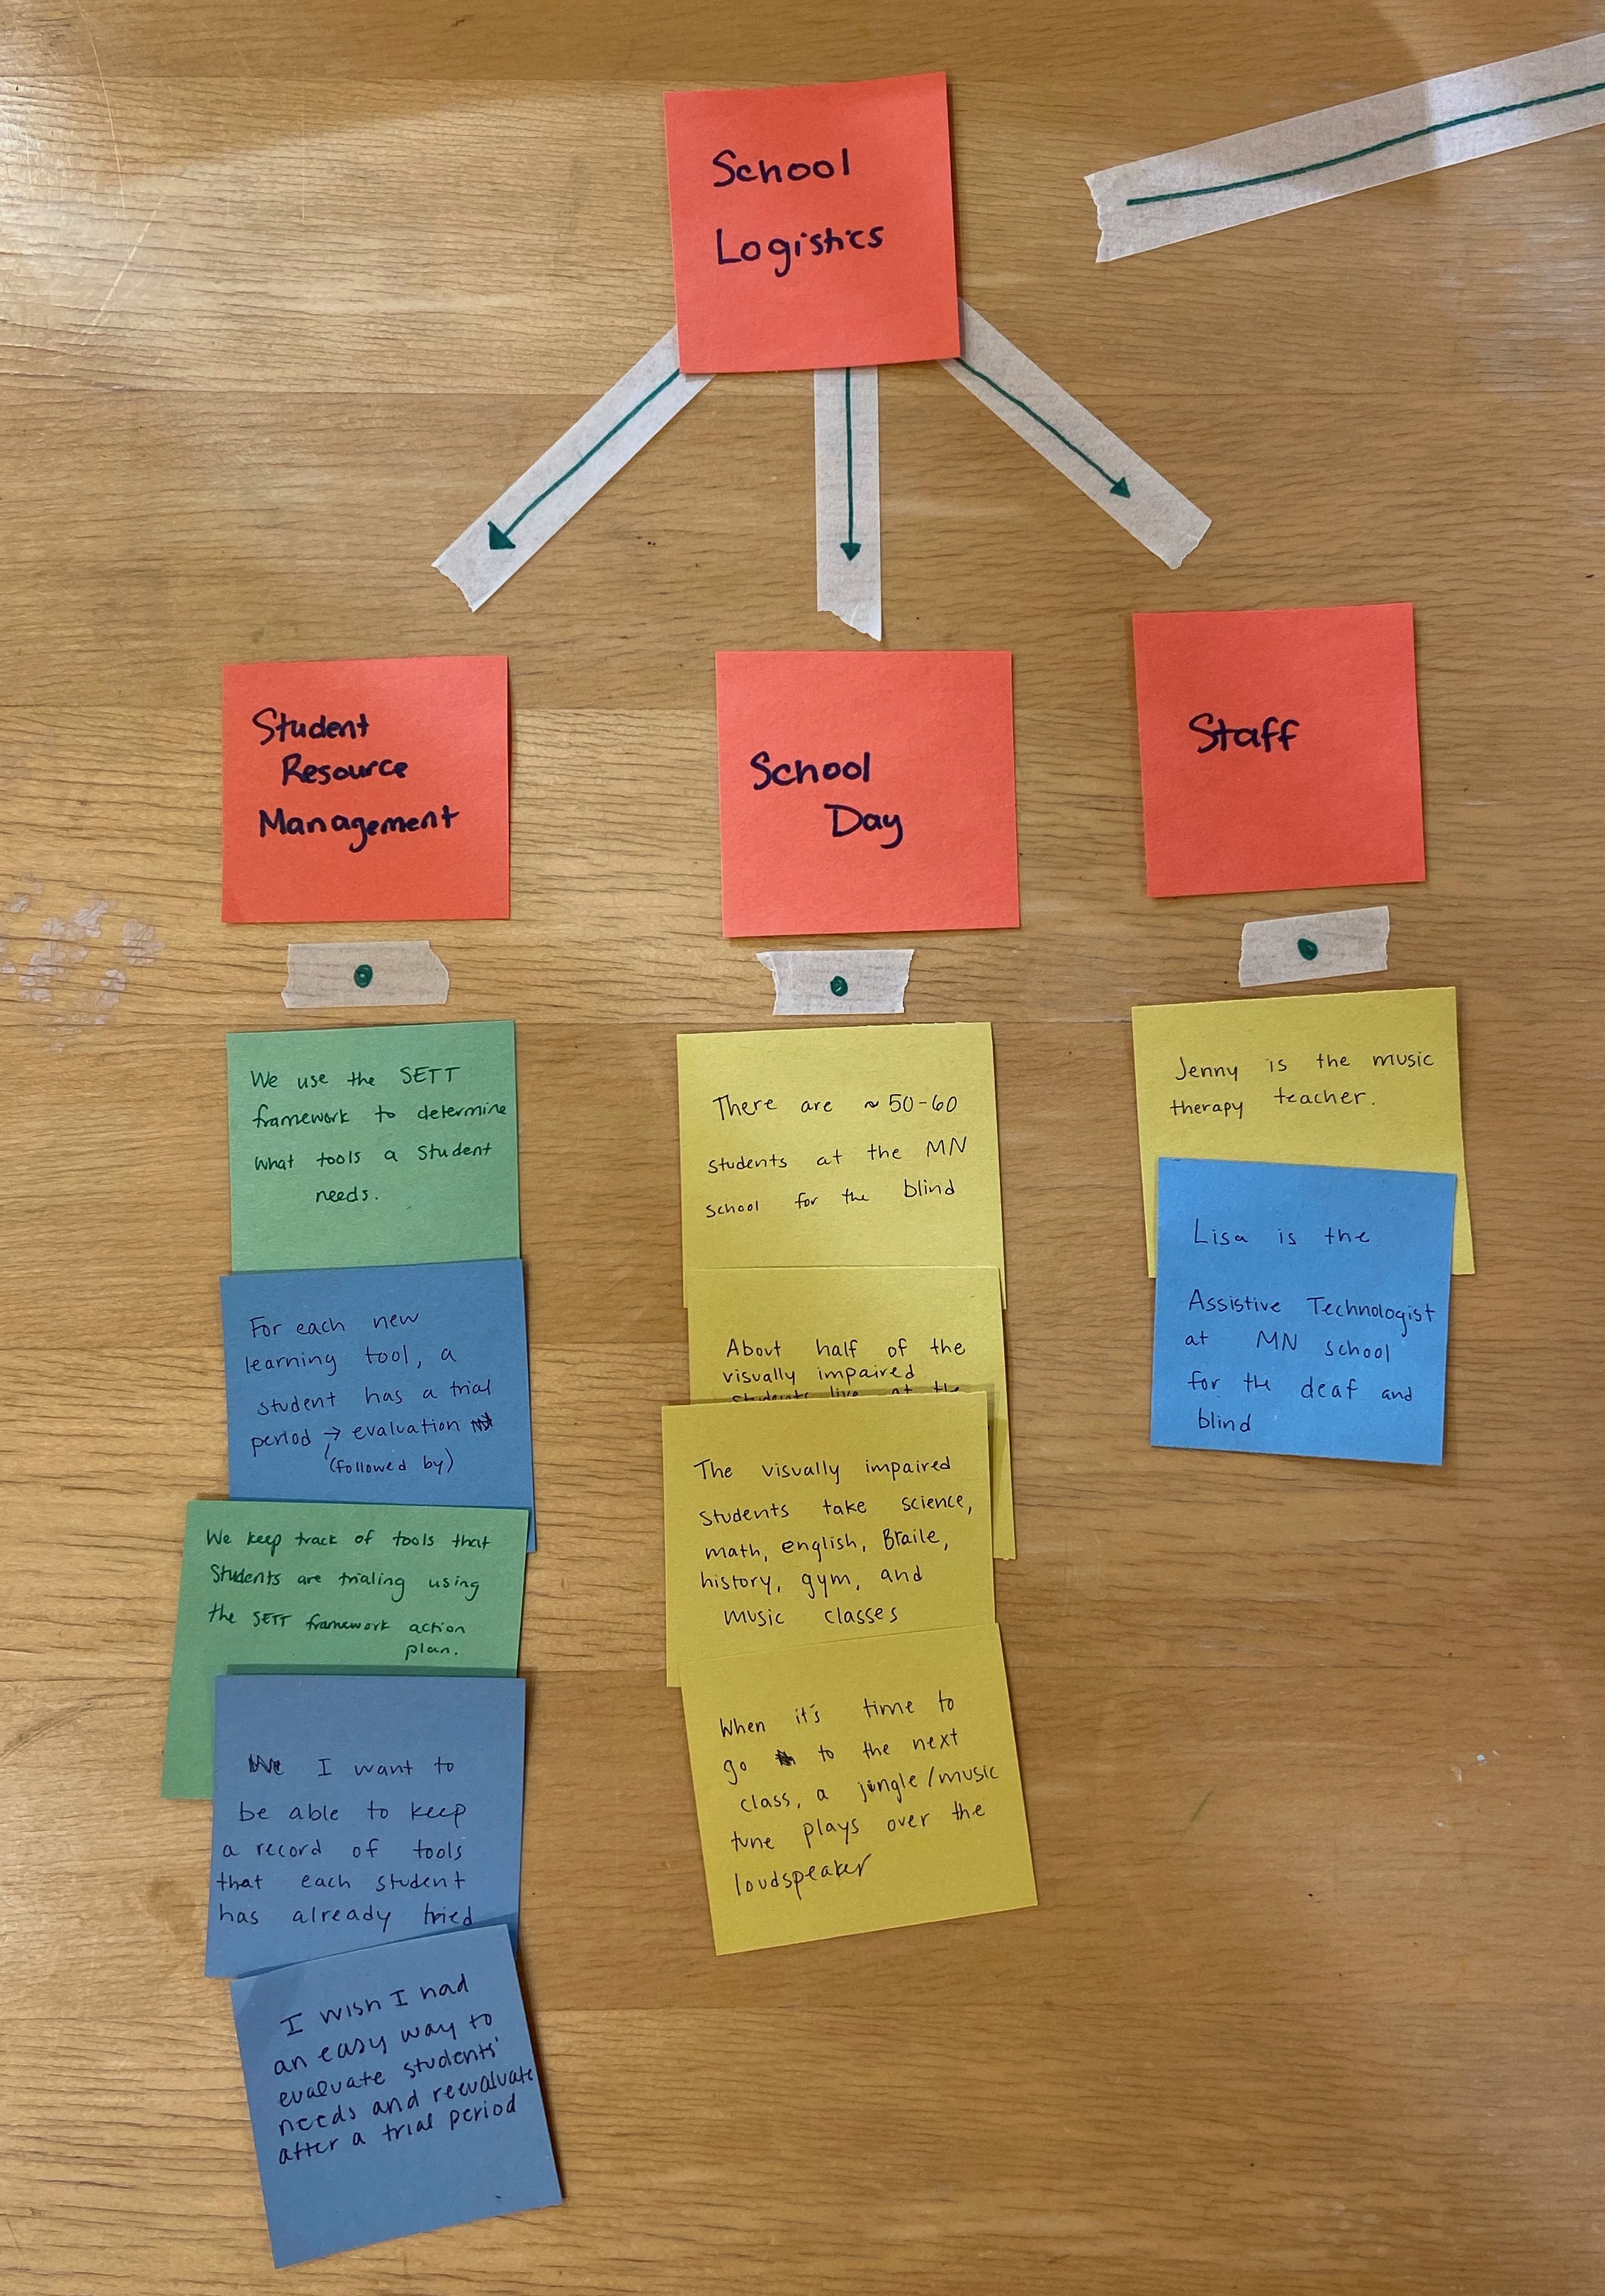 School
Logistics
Student
Resource
Management
School
Day
Staff
We use the SETT
framework to determine
what tools a student
needs.
For each new
learning tool, a
student has a trial
period → evaluation
(followed by)
We keep track of tools that
Students are trialing using
the SETT framework action
plan.
I want to
be able to keep
a record of tools
that each student
has already tried
I wish I had
an easy way to
evaluate students'
needs and reevaluate
after a trial period
There are ~50-60
students at the MN
school for the blind
About half of the
visually impaired
students live at the
The visually impaired
students take science,
math, english, Braile,
history, gym, and
music classes
When it's time to
go to the next
class, a jingle/music
tune plays over the
loudspeaker
Jenny is the music
therapy teacher.
Lisa is the
Assistive Technologist
at MN school
for the deaf and
blind